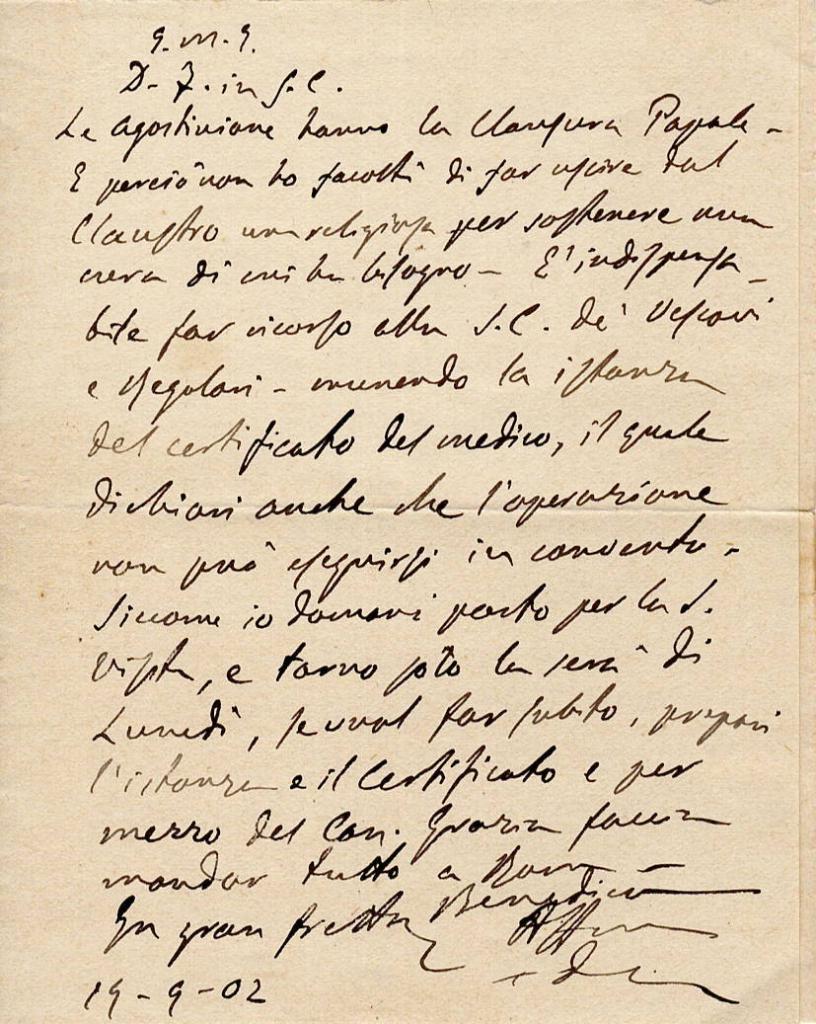 G. M. G.
D. F. in G. C.
Le Agostiniane hanno la Clausura Papale -
E perciò non ho facoltà di far uscire dal
Claustro una religiosa per sostenere una
cura di cui ha bisogno - E' indispensa-
bile far ricorso alla S. C. de' Vescovi
e Regolari - munendo la istanza
del certificato del medico, il quale
dichiari anche che l'operazione
non può eseguirsi in convento.
Siccome io domani parto per la S.
Visita, e torno solo la sera di
Lunedì, se vuol far subito, prepari
l'istanza e il Certificato e per
mezzo del Can. Grazia faccia
mandar tutto a Roma
Benedico
In gran fretta
19-9-02